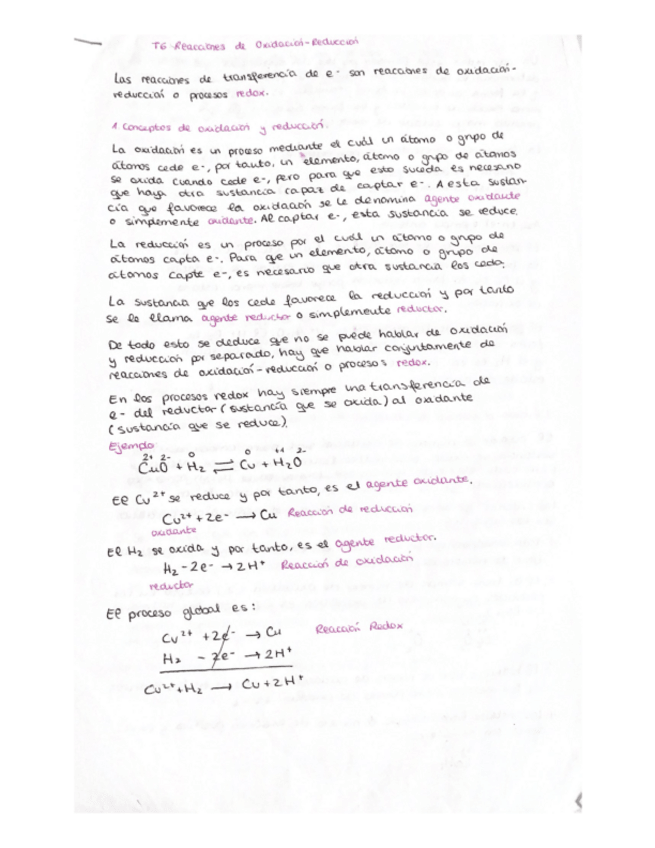 T6 Reacciones de Oxidación-Reducción
Las reacciones de transferencia de e- son reacciones de oxidación-
reducción o procesos redox.
1 Conceptos de oxidación y reducción.
La oxidación es un proceso mediante el cuál un átomo o grupo de
átomos cede e-, por tanto, un elemento, átomo o grupo de átomos
se oxida cuando cede e-, pero para que esto suceda es necesario
que haya otra sustancia capaz de captar e-. A esta sustan-
cia que favorece la oxidación se le denomina agente oxidante
o simplemente oxidante. Al captar e-, esta sustancia se reduce.
La reducción es un proceso por el cuál un átomo o grupo de
átomos capta e-. Para que un elemento, átomo o grupo de
átomos capte e-, es necesario que otra sustancia los ceda.
La sustancia que los cede favorece la reducción y por tanto
se le llama agente reductor o simplemente reductor.
De todo esto se deduce que no se puede hablar de oxidación
y reducción por separado, hay que hablar conjuntamente de
reacciones de oxidación-reducción o procesos redox.
En los procesos redox hay siempre una transferencia de
e- del reductor (sustancia que se oxida) al oxidante
(sustancia que se reduce).
Ejemplo
2+ 2- 0 0 +1 2-
CuO + H₂ ⇌ Cu + H₂O
El Cu²⁺ se reduce y por tanto, es el agente oxidante.
Cu²⁺ + 2e- → Cu Reacción de reducción
oxidante
El H₂ se oxida y por tanto, es el agente reductor.
H₂ - 2e- → 2H⁺ Reacción de oxidación
reductor
El proceso global es:
Cu²⁺ + 2e- → Cu Reacción Redox
H₂ - 2e- → 2H⁺
Cu²⁺ + H₂ → Cu + 2H⁺